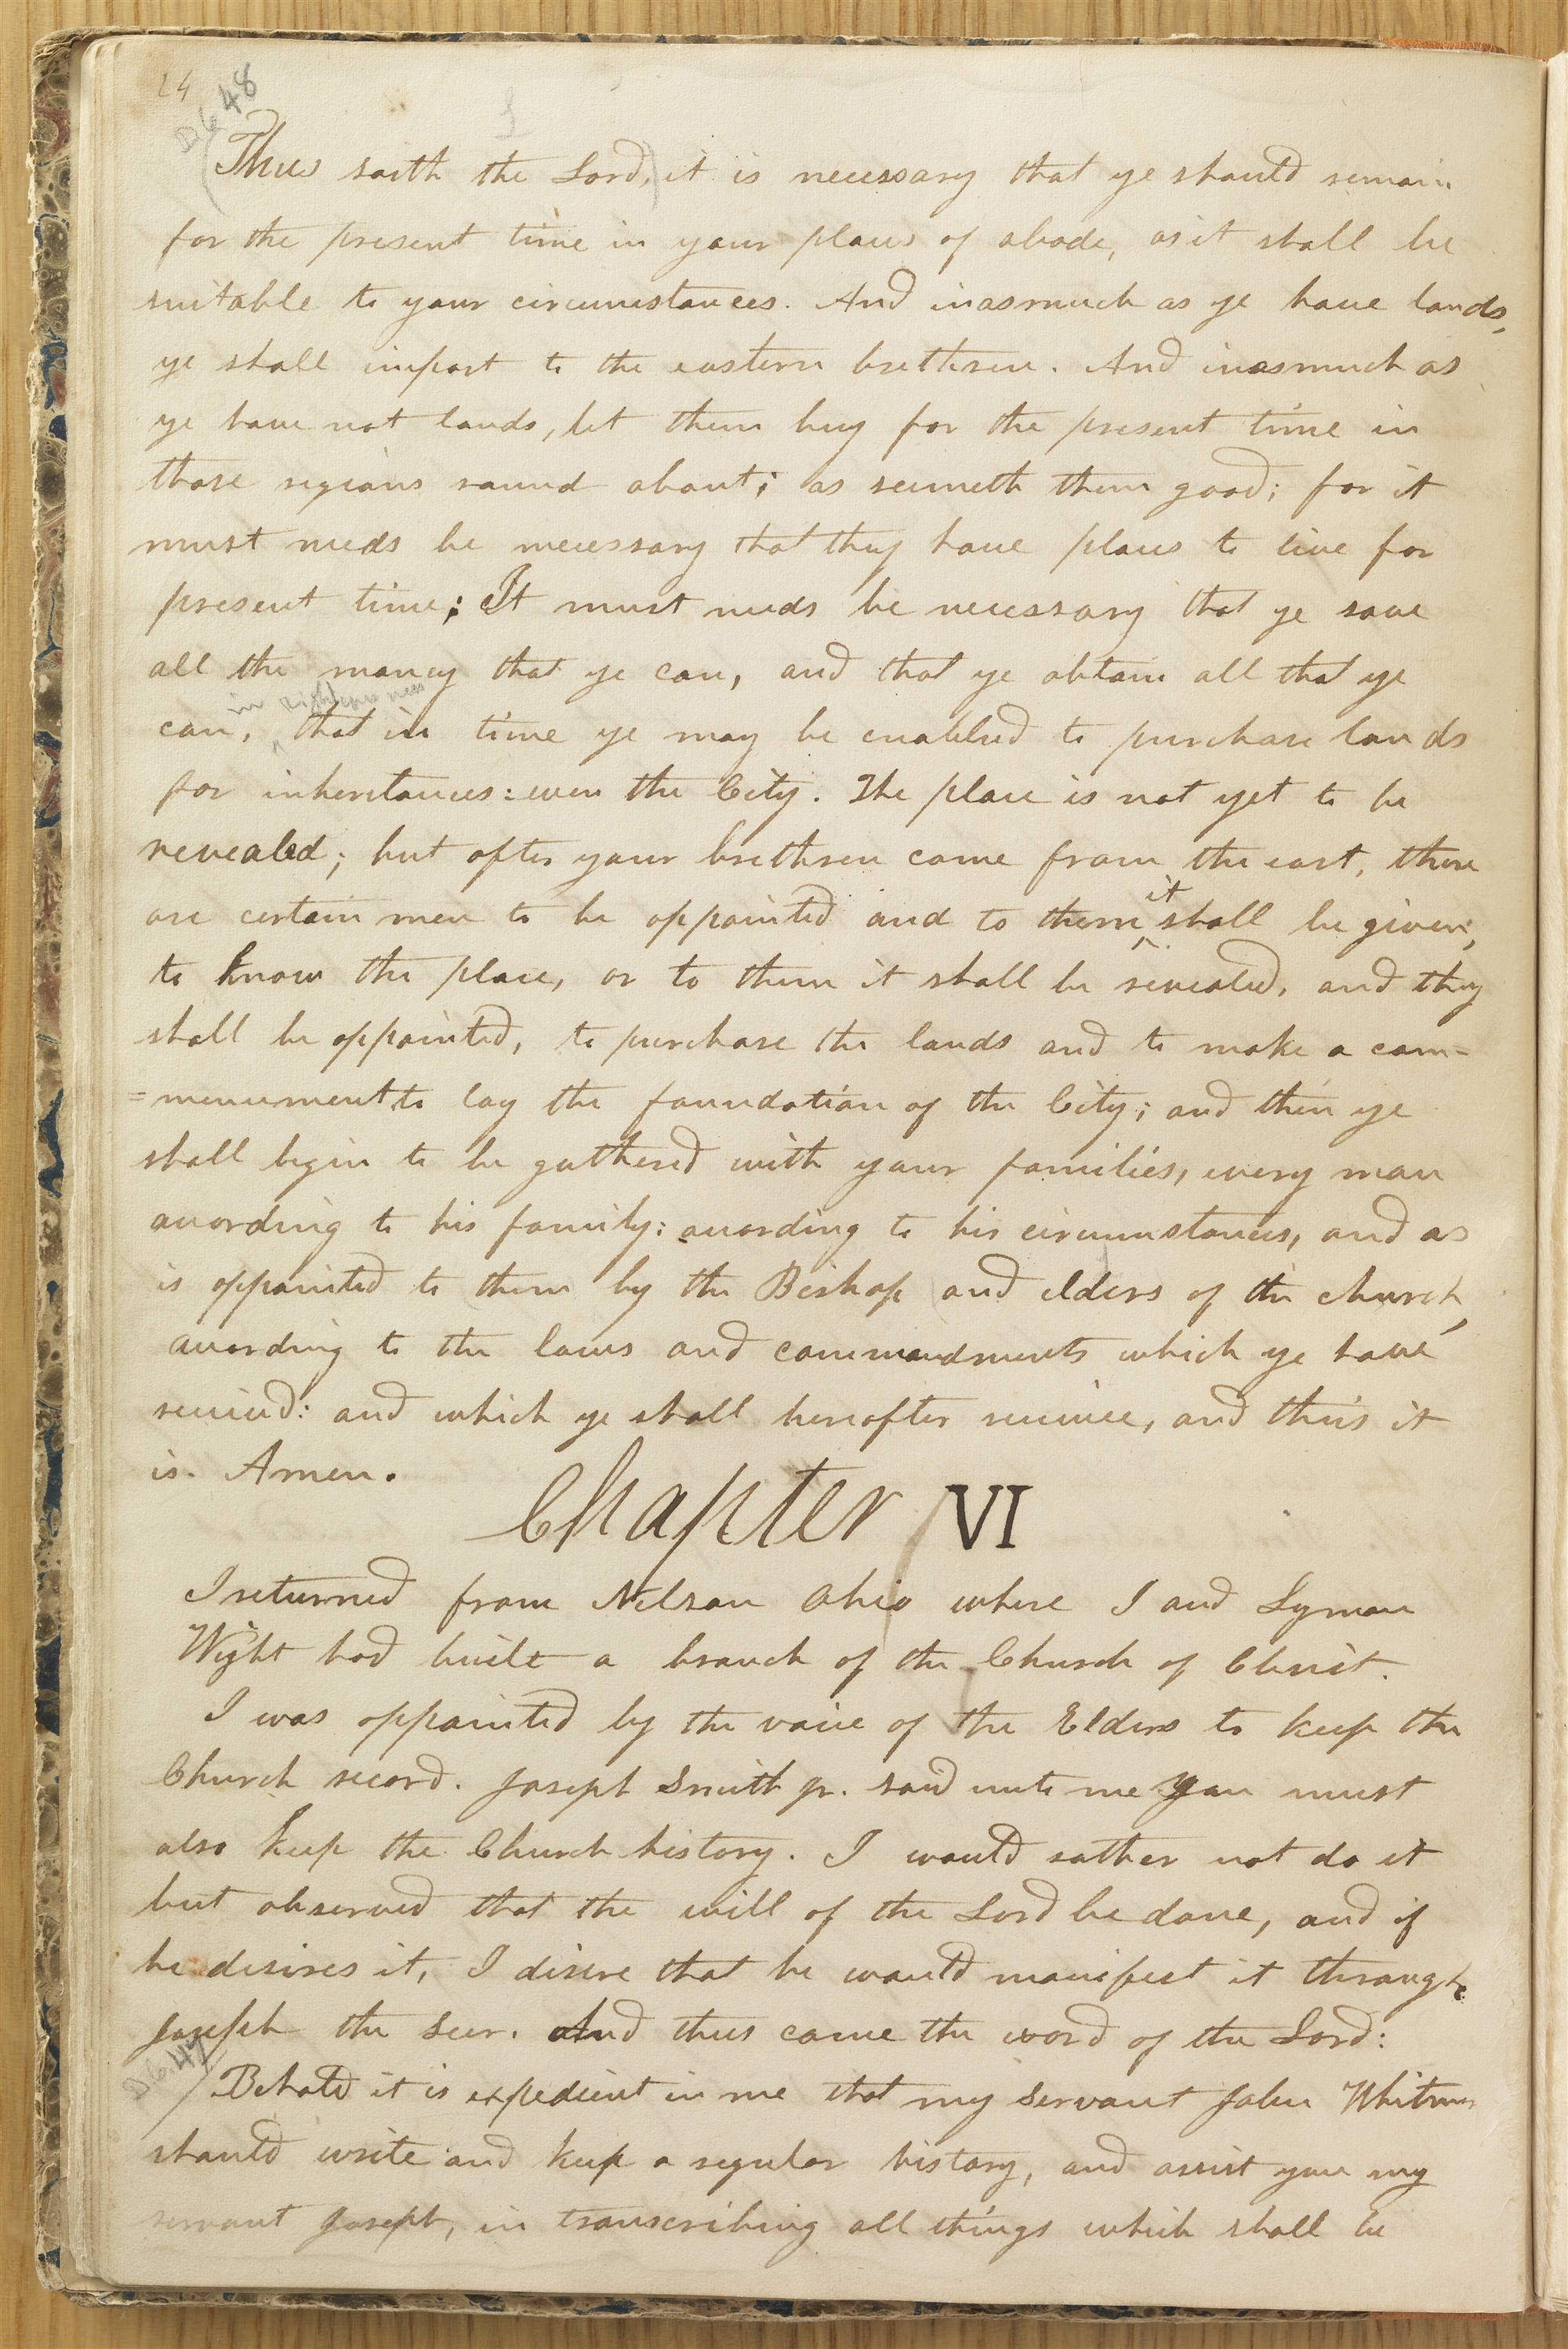 24
D&C 48
Thus saith the Lord, it is necessary that ye should remain
for the present time in your places of abode, as it shall be
suitable to your circumstances. And inasmuch as ye have lands,
ye shall impart to the eastern brethren. And inasmuch as
ye have not lands, let them buy for the present time in
those regions round about; as seemeth them good; for it
must needs be necessary that they have places to live for
present time; It must needs be necessary that ye save
all the money that ye can, and that ye obtain all that ye
in righteousness
can, ^ that in time ye may be enabled to purchase lands
for inheritances: even the City. The place is not yet to be
revealed; but after your brethren come from the east, there
it
are certain men to be appointed and to them ^ shall be given,
to know the place, or to them it shall be revealed, and they
shall be appointed, to purchase the lands and to make a com=
=mencement to lay the foundation of the City; and then ye
shall begin to be gathered with your families, every man
according to his family: according to his circumstances, and as
is appointed to them by the Bishop and elders of the church,
according to the laws and commandments which ye have
received: and which ye shall hereafter receive, and thus it
is. Amen.
Chapter VI
I returned from Nelson Ohio where I and Lyman
Wight had built a branch of the Church of Christ.
I was appointed by the voice of the Elders to keep the
Church record. Joseph Smith jr. said unto me you must
also keep the Church history. I would rather not do it
but observed that the will of the Lord be done, and if
he desires it, I desire that he would manifest it through
Joseph the Seer. And thus came the word of the Lord:
D&C 47
Behold it is expedient in me that my servant John Whitmer
should write and keep a regular history, and assist you my
servant Joseph, in transcribing all things which shall be